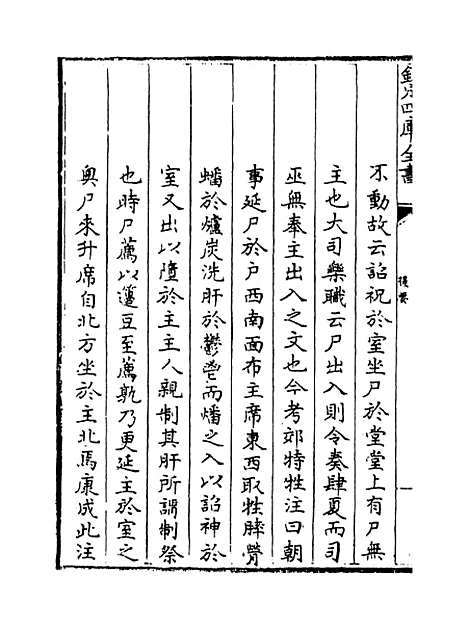 欽定四庫全書
提要
不動故云詔祝於室坐尸於堂堂上有尸無
主也大司樂職云尸出入則令奏肆夏而司
巫無奉主出入之文也今考郊特牲注曰朝
事延尸於户西南面布主席東西取牲膟膋
燔於爐炭洗肝於鬱鬯而燔之入以詔神於
室又出以墮於主主人親制其肝所謂制祭
也時尸薦以籩豆至薦孰乃更延主於室之
奥尸來升席自北方坐於主北焉康成此注